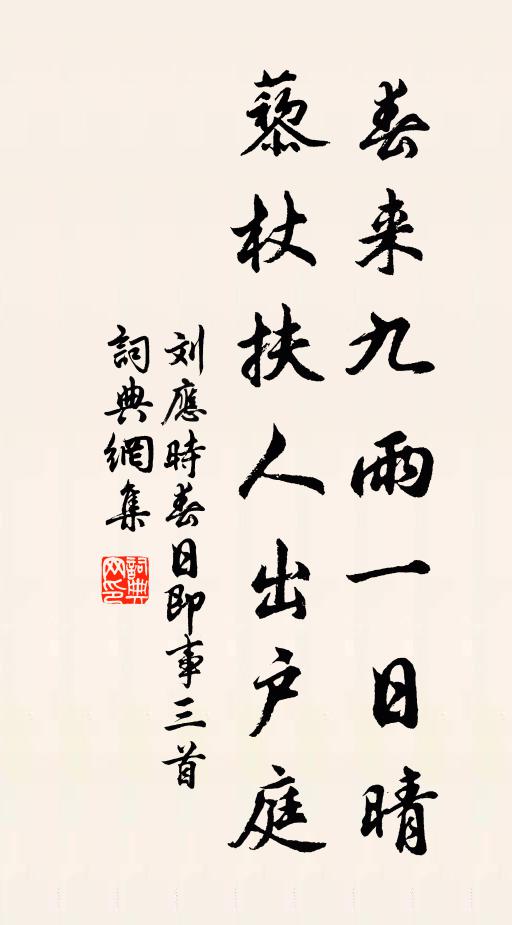 春来九雨一日晴
藜杖扶人出户庭
刘應時春日即事三首
詞典網集
詞典网印